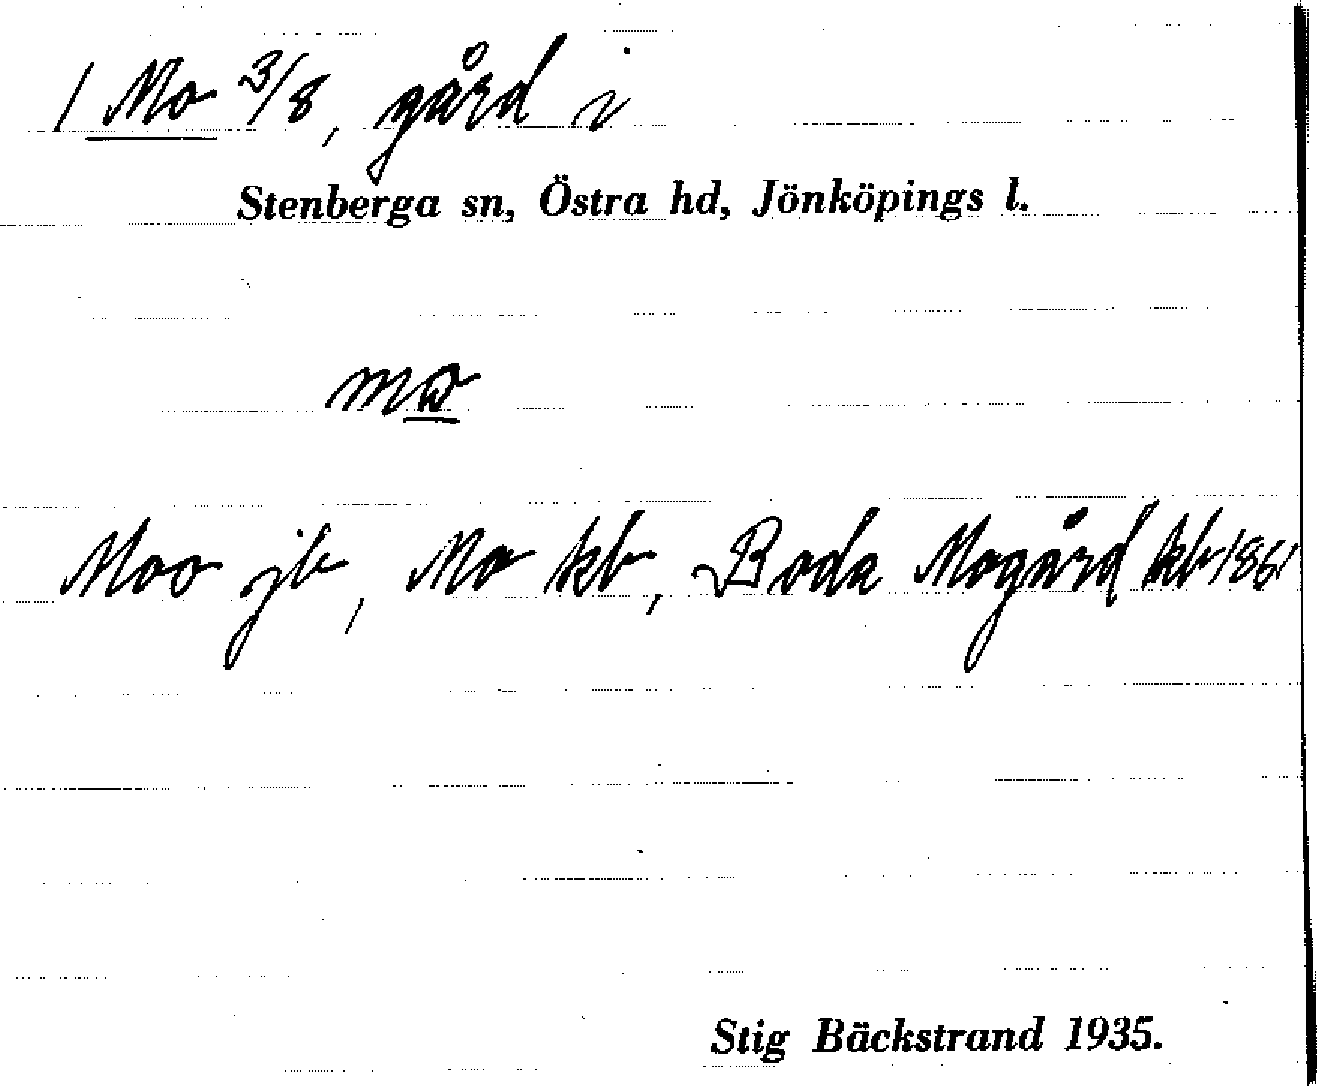 1 Mo 3/8, gård i
Stenberga sn, Östra hd, Jönköpings l.
mo
Moo jb, Mo kb, Boda Mogård kb 1861
Stig Bäckstrand 1935.